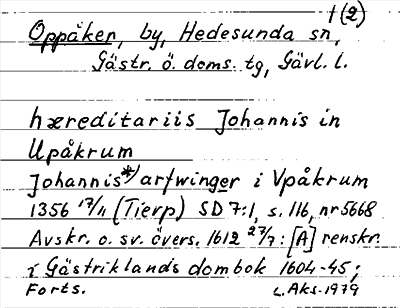 1(2)
Oppåker, by, Hedesunda sn,
Gästr. ö. doms. tg, Gävl. l.
hæreditariis Johannis in
Upåkrum
Johannis*/ arfwinger i Vpåkrum
1356 17/11 (Tierp) SD 7:1, s. 116, nr 5668
Avskr. o. sv. övers. 1612 27/7: [A] renskr.
i Gästriklands dombok 1604-45;
Forts. L. Aks. 1979